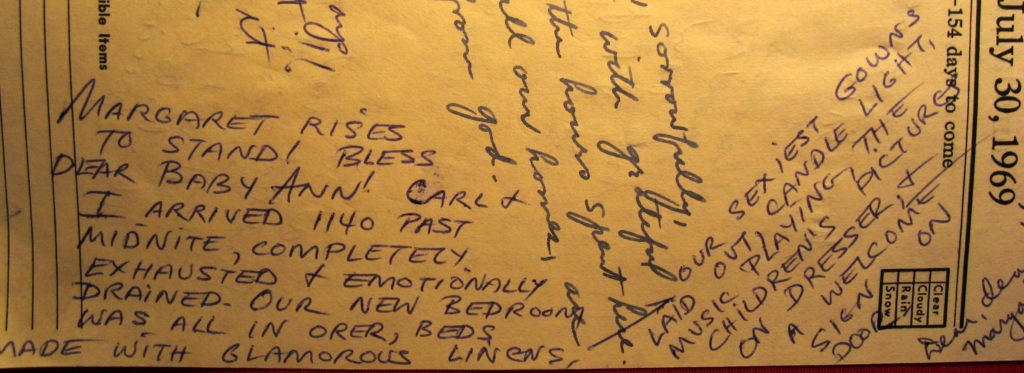 July 30, 1969
-154 days to come
ible Items
it!
sorrowfully,
with grateful
the hours spent here.
all our homes, are
from god.
MARGARET RISES
TO STAND! BLESS
DEAR BABY ANN! CARL &
I ARRIVED 1140 PAST
MIDNITE, COMPLETELY
EXHAUSTED & EMOTIONALLY
DRAINED. OUR NEW BEDROOM
WAS ALL IN ORER, BEDS
MADE WITH GLAMOROUS LINENS,
OUR SEXIEST GOWNS
LAID OUT, CANDLE LIGHT,
MUSIC PLAYING, THE
CHILDREN'S PICTURES
ON DRESSER, &
A WELCOME
SIGN ON
DOOR
Clear
Cloudy
Rain
Snow
Dear, dear